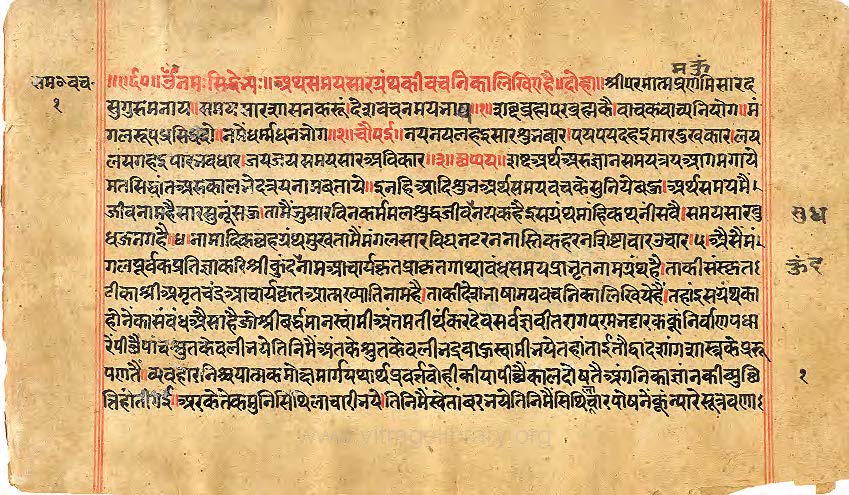 मकुं
समय॰वच॰
१
॥ॐनमःसिद्धेभ्यः॥अथसमयसारग्रंथकीवचनिकालिखिएहै॥दोहा॥श्रीपरमात्मप्रणमिसारद
सुगुरुमनाय॥समयसारशासनकरूंदेशवचनमयभाय॥१॥शब्दब्रह्मपरब्रह्मकै।वाचकवाच्यनियोग॥मं
गलरूपप्रसिद्धह्वै।नमोधर्मधनभोग॥२॥चौपई॥नयनयलहइसारशुभवार।पयपयदहइमारदुखकार।लय
लयगहइपारभवधार।जयजयसमयसारअविकार॥३॥छप्पय॥शब्दअर्थअरुज्ञानसमयत्रयआगमगाये
मतसिद्धांतअरुकालभेदत्रयनामबताये॥इनहिआदिशुभअर्थसमयवचकेसुनियेबहु॥अर्थसमयमै।
जीवनामहैसारसुनूंसहु।तामैंजुसारविनकर्ममलशुद्धजीवनयकहैइसग्रंथमांहिकथनीसबै।समयसारबु
सुध
धजनगहै॥४॥नामादिकछहग्रंथमुखतामैंमंगलसार।विघनहरननास्तिकहरनशिष्टाचारउचार॥५॥ऐसैंमं
गलपूर्वकप्रतिज्ञाकरिश्रीकुंदनामआचार्यकृतप्राकृतगाथाबंधसमयप्राभृतनामग्रंथहै।ताकीसंस्कृत
कुंद
टीकाश्रीअमृतचंद्रआचार्यकृतआत्मख्यातिनामहै।ताकीदेशभाषामयवचनिकालिखियेहै।तहांइसग्रंथका
होनेकासंबंधऐसाहैजोश्रीवर्द्धमानस्वामीअंतमतीर्थंकरदेवसर्वज्ञवीतरागपरमभट्टारककूंनिर्वाणपधा
रेपीछैंपांचश्रुतकेवलीभयेतिनिमैंअंतकेश्रुतकेवलीभद्रबाहुस्वामीभयेतहांताईतौद्वादशांगशास्त्रकेप्ररू
पणतैंव्यवहारनिश्चयात्मकमोक्षमार्गयथार्थप्रवर्त्तवोहीकीयापीछैकालदोषतैंअंगनिकाज्ञानकीव्युच्छि
१
त्तिहोतीगई।अरकेतेकमुनिसिथिलाचारीभये।तिनिमैंस्वेतांबरभयेतिनिमैंसिथिलाचारपोषनेकूंन्यारेसूत्रबणा
www.vitragelibrary.org